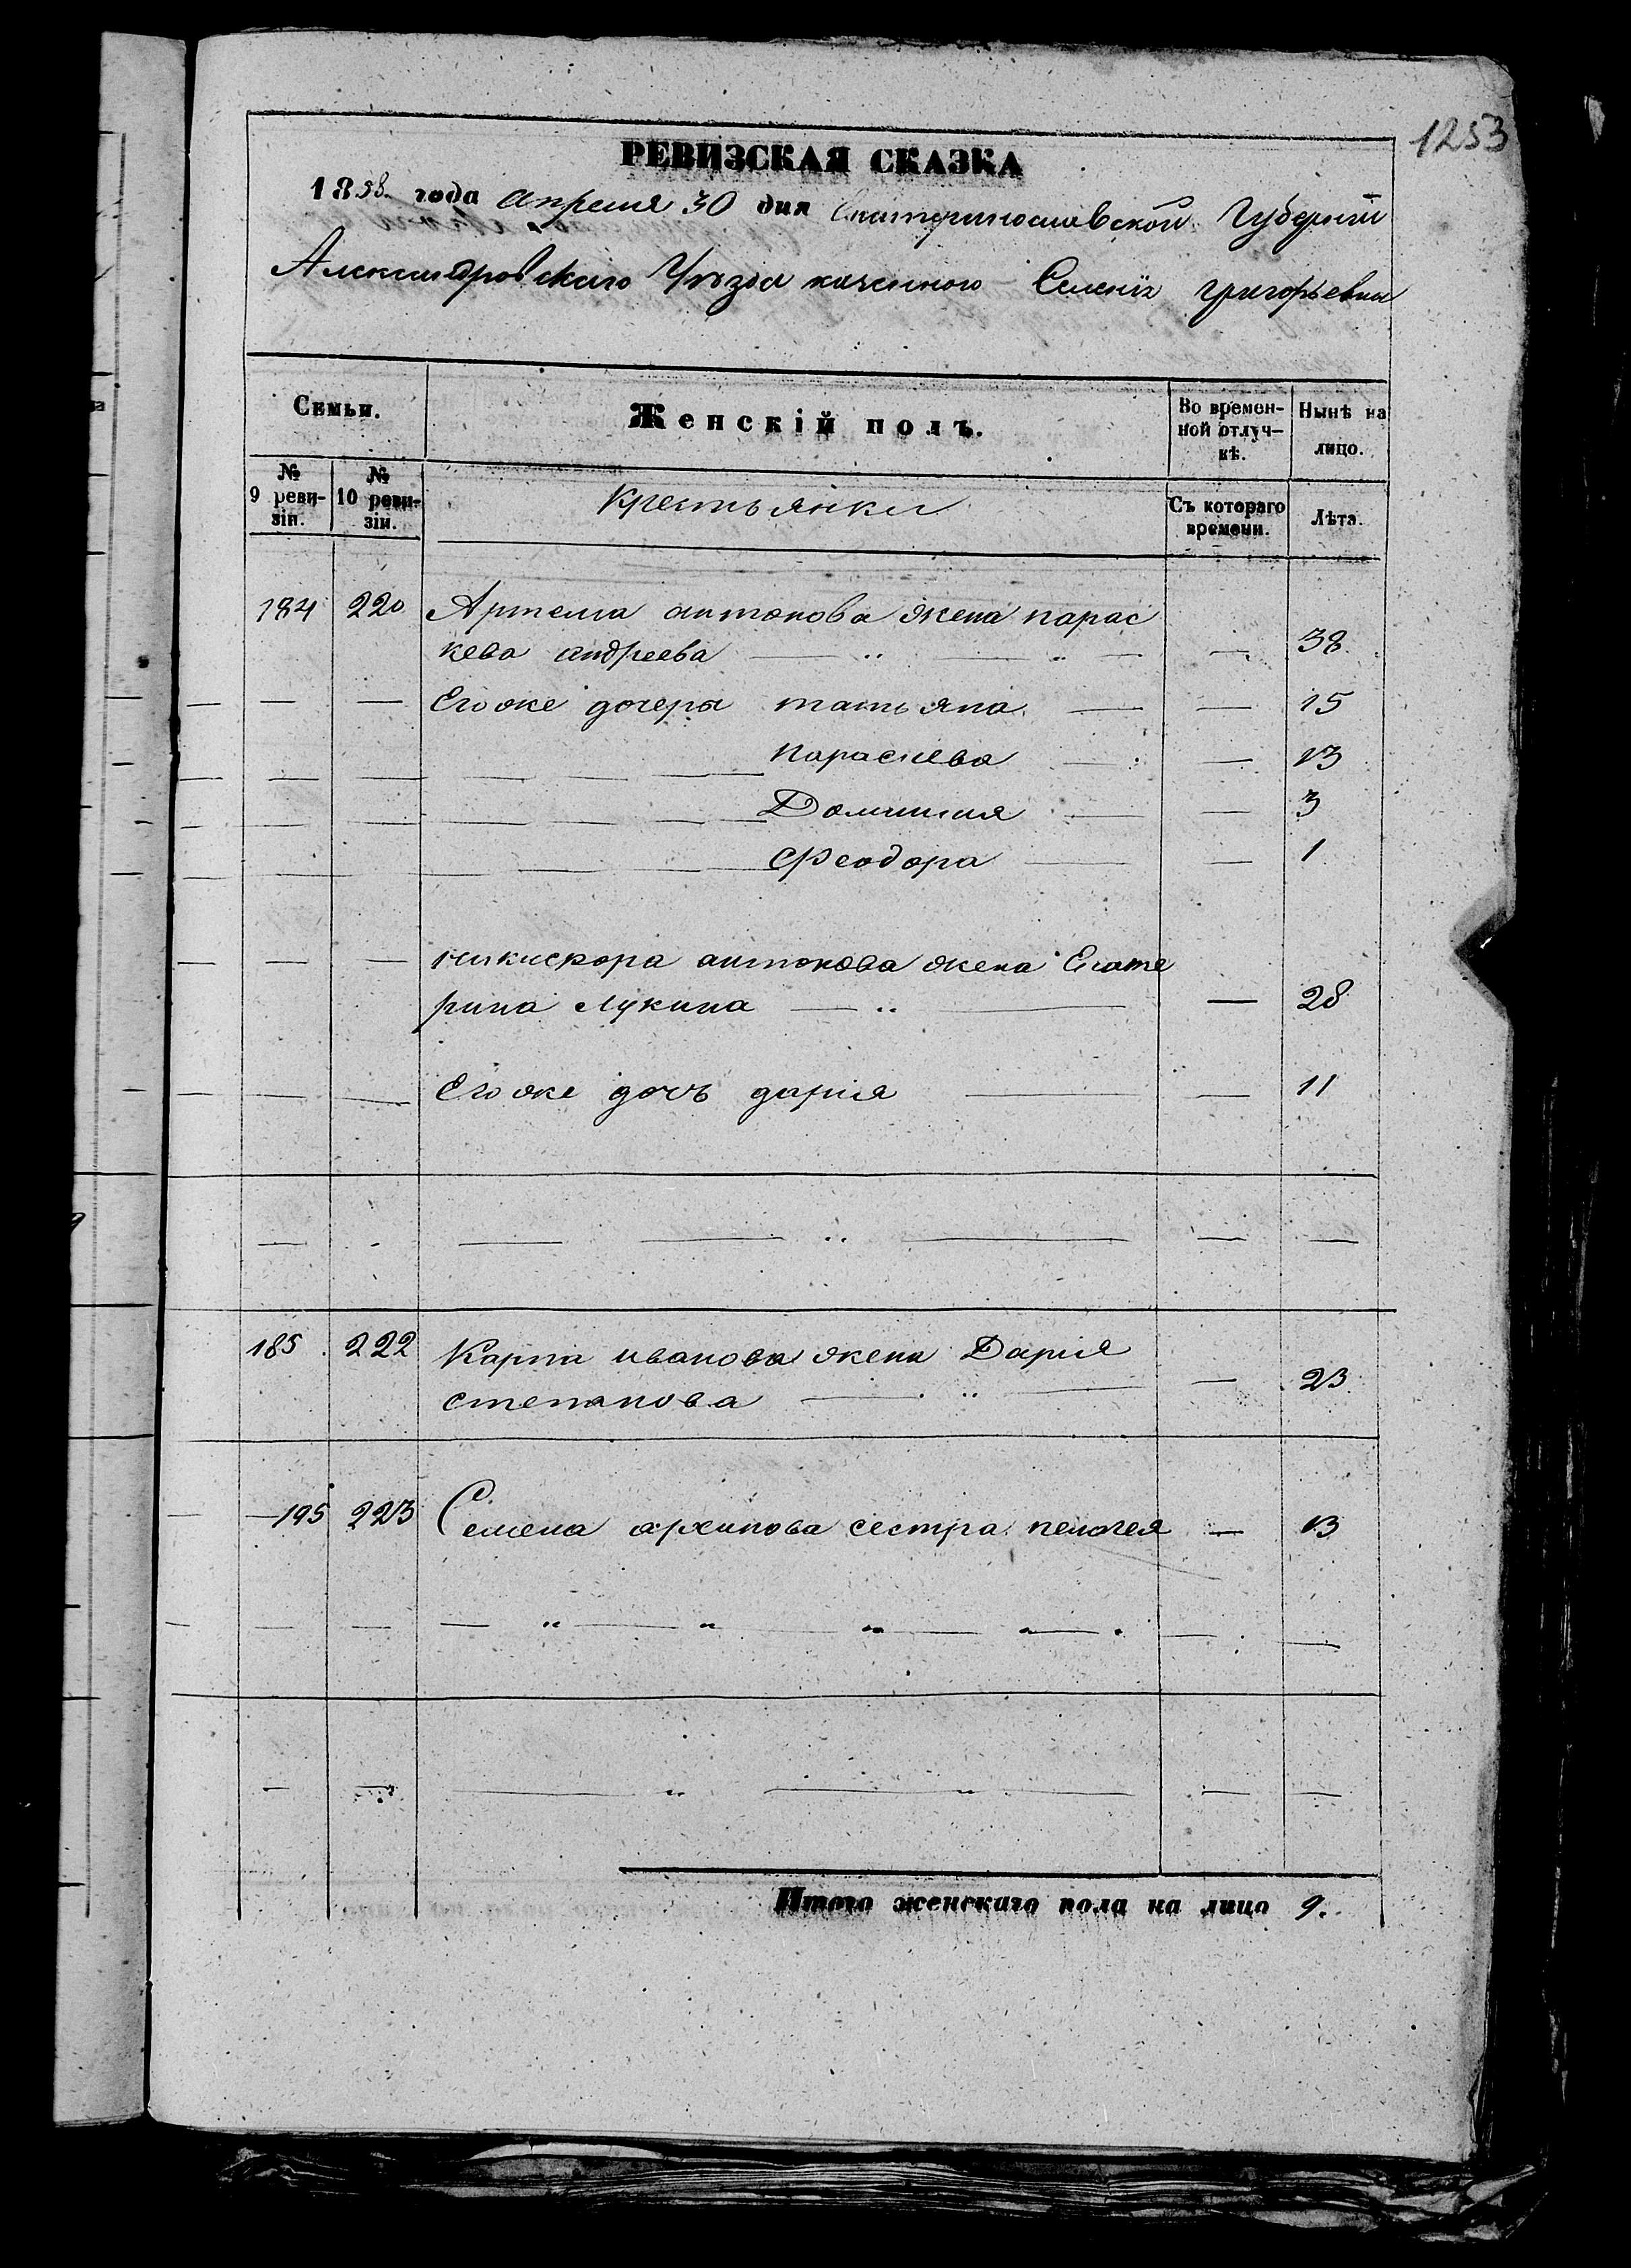 1253
РЕВИЗСКАЯ СКАЗКА
1858 года Апреля 30 дня Екатеринославской Губернии
Александровского Уезда казенного Селения Григорьевки
Семьи.
Женскій полъ.
Во времен-
ной отлуч-
кѣ.
Нынѣ на
лицо.
№
9 реви-
зіи.
№
10 реви-
зіи.
Крестьянки
Съ котораго
времени.
Лѣта.
184 220 Артема антонова жена парас
кева андреева — „ — „ — — 38
— — Его же дочери татьяна — — 15
— — — — — — параскева — — 13
— — — — — — Домникия — — 3
— — — — — — Феодора — — 1
— — никифора антонова жена Екате
рина Лукина — „ — — 28
— — Его же дочь дария — — 11
— - — — „ — — —
185 222 Карпа иванова жена Дария
степанова — „ — — 23
195 223 Семена архипова сестра пелагея — 13
— — — „ — „ — „ — „ — — —
— — — „ — „ — — —
Итого женскаго пола на лицо 9.